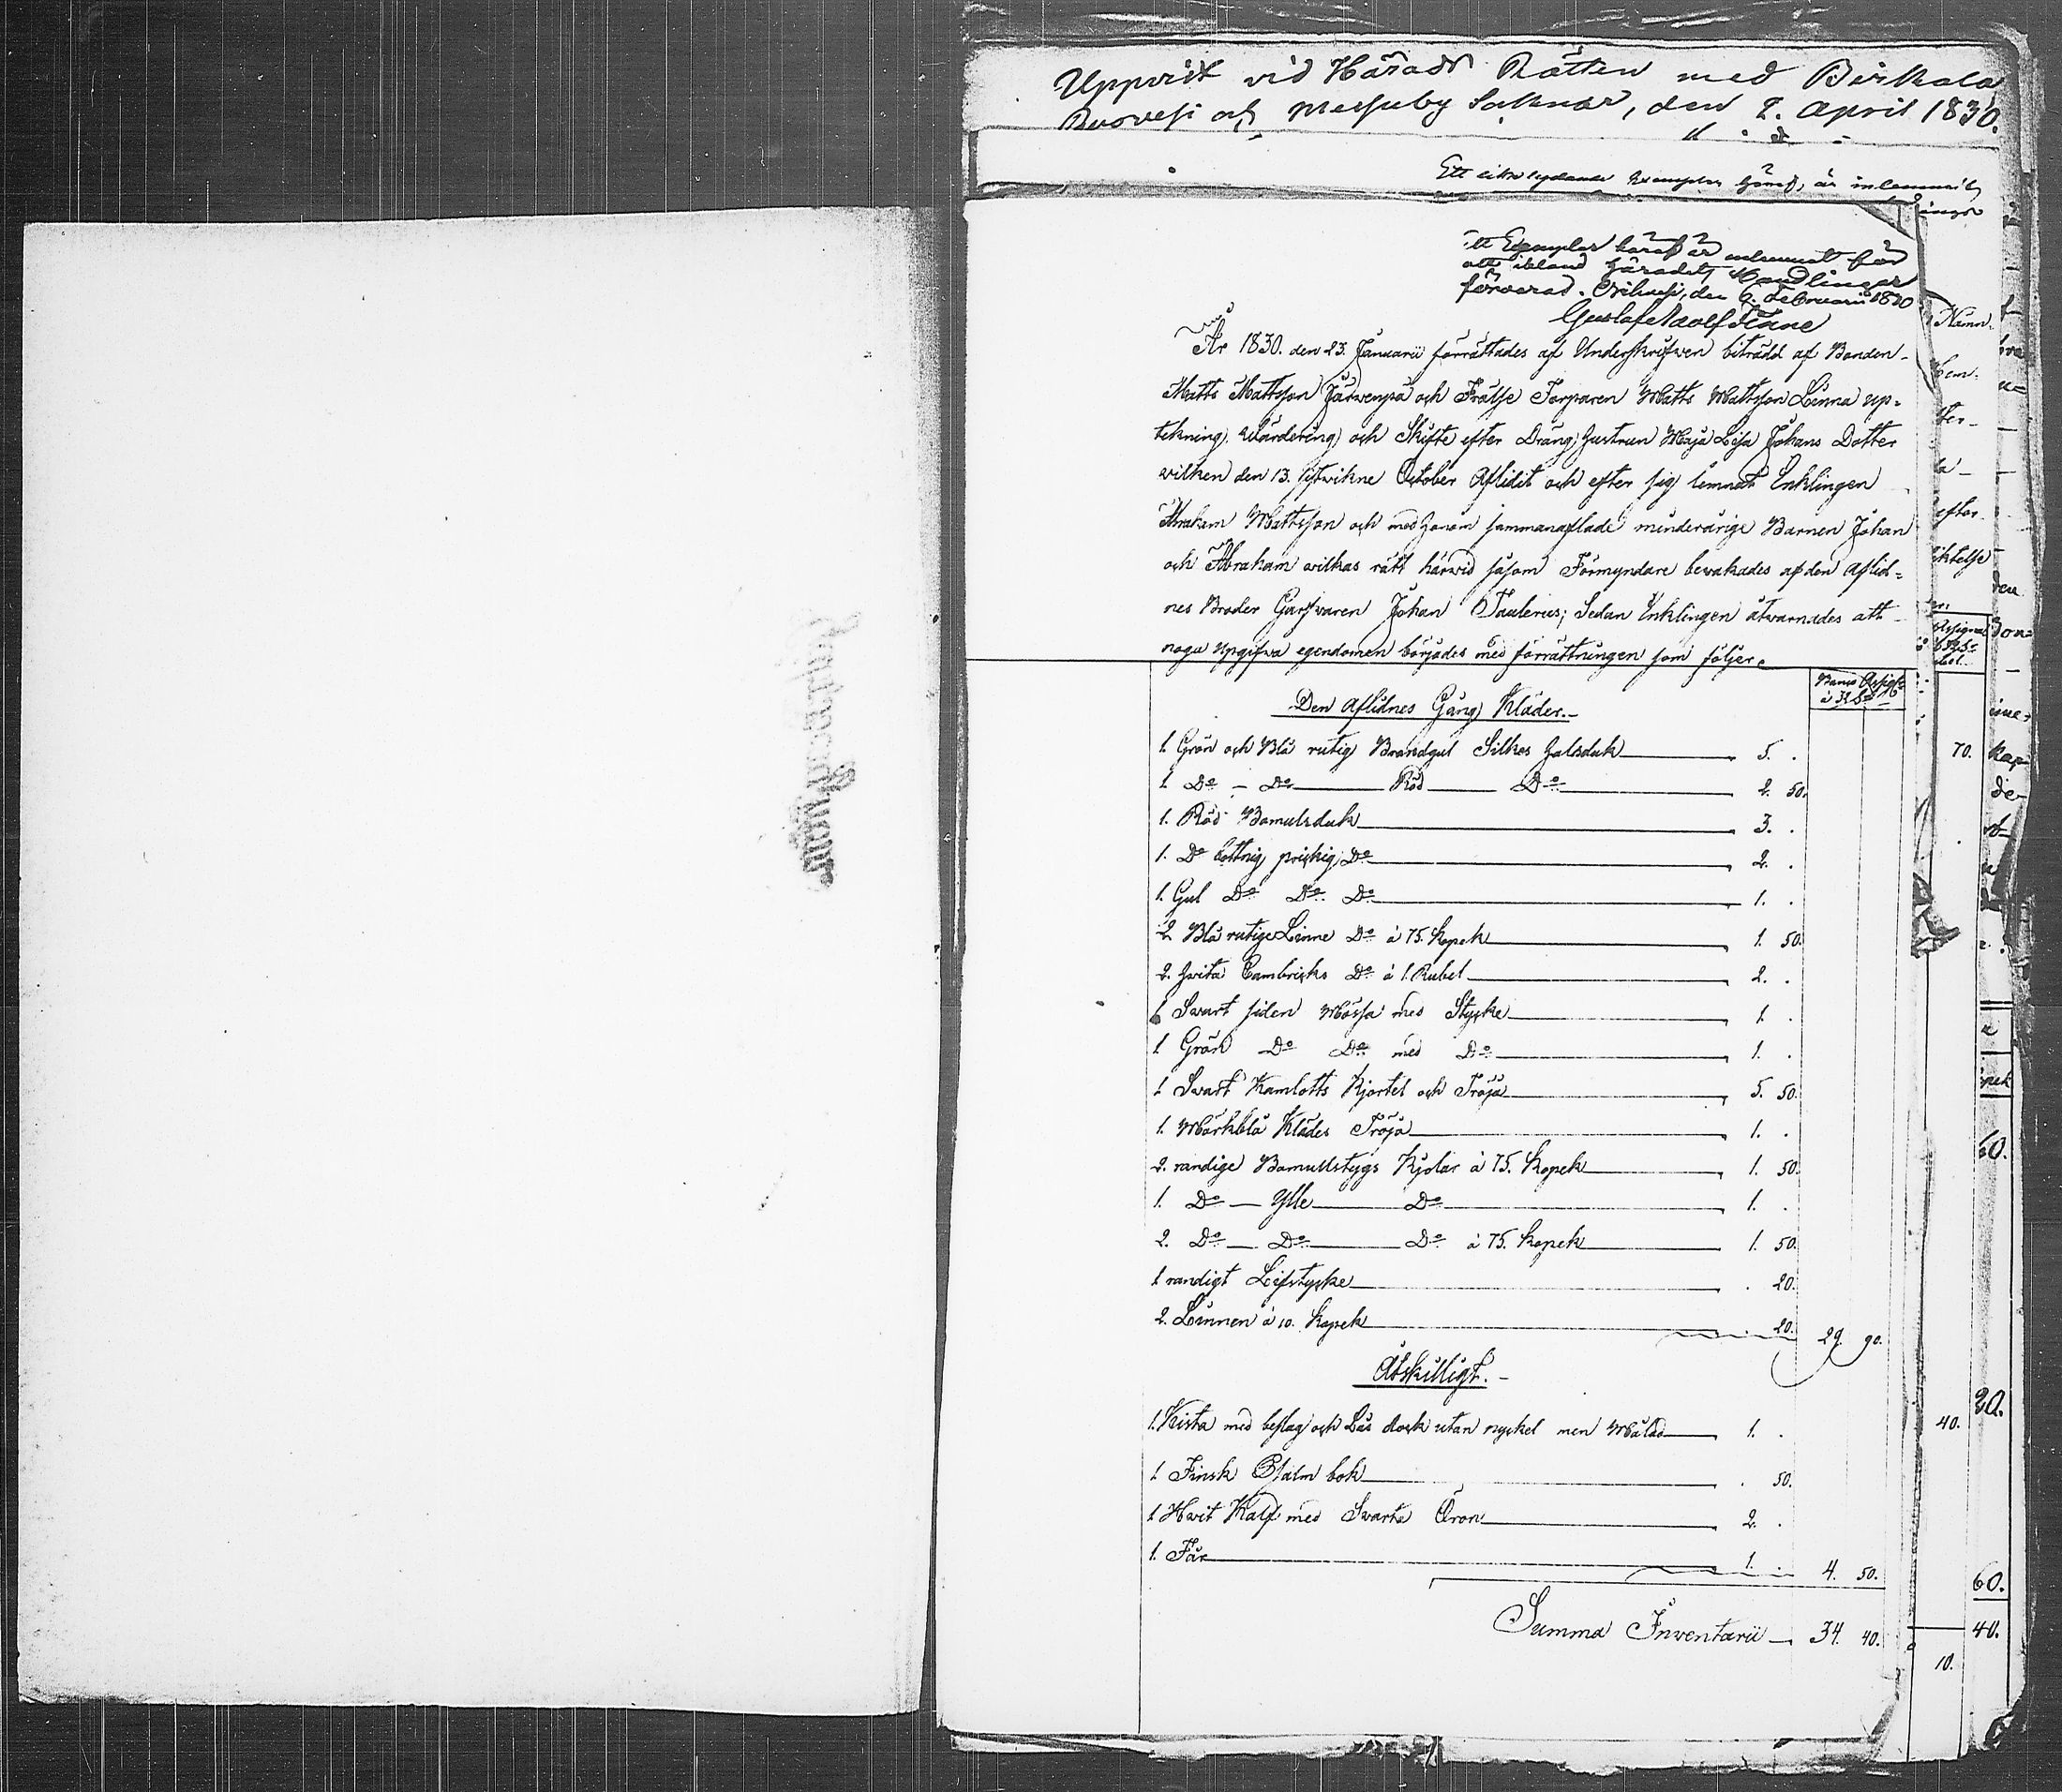 Uppvist vid Härads Rätten med Birkkala
Ruovesi och Messuby Soknar, den 2. April 1830.
Ett lika lydande Exemplar häraf, är inlemnadt
Ett Exemplar häraf är inlemnadt för
att ibland Häradets Handlingar
förvarad. den 6. Februarii 1830
Gustaf Adolf
År 1830. den 23. Januarii förrättades af Underskrifwen biträdd af Bonden
Matts Mattsson Järwenpä och Frälse Torparen Matts Mattsson Linna up-
tekning, wärdering och Skifte efter Dräng hustrun Maja Lisa Johans Dotter
wilken den 13. sistwikne October Aflidit och efter sig lemnat Enklingen
Abraham Mattsson och med honom sammanaflade minderårige Barnen Johan
och Abraham wilkas rätt härwid såsom Förmyndare bewakades af den Aflid-
nes Broder Garfwaren Johan Taulerus; Sedan Enklingen åtwarnades att
noga Upgifwa egendomen börjades med förrättningen som följer.
Banco Assign
Den Aflidnes Gång Kläder.
1. Grön och Blå rutig Brandgul Silkes halsduk 5. .
1 Do - Do Röd Do 2. 50.
1. Röd Bomulsduk 3. .
1. Do bottnig prickig Do 2. .
1. Gul Do Do Do 1. .
2 Blå rutige Linne Do à 75. kopek 1. 50.
2. hvita Cambriks Do à 1. Rubel 2. .
1 Swart siden Mössa med Stycke 1. .
1 Grön Do Do med Do 1. .
1 Swart Kamlotts Kjortel och Tröja 5. 50.
1. Mörkblå Klädes Tröja 1. .
2. randige Bomullstygs Kjolar à 75. kopek 1. 50.
1. Do - Ylle Do 1. .
2. Do - Do Do à 75. kopek 1. 50.
1 randigt Lifstycke . 20.
2. Linnen à 10. kopek 20. 29. 90.
Åtskilligt.
1. Kista med beslag och Lås dock utan nyckel men Målad 1. .
1 Finsk Psalm bok . 50.
1 Hwit Kalf med Swarta Öron 2. .
1. Får 1. . 4. 50.
Summa Inventarii 34. 40.
Namn
efter
70.
40.
10.
60.
20.
60.
40.